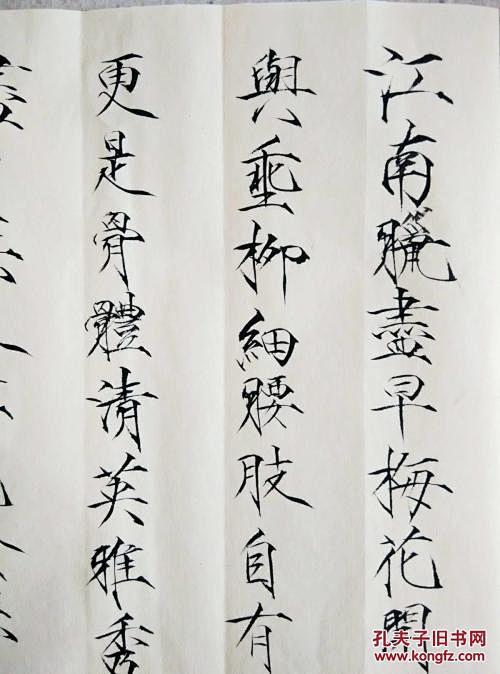 江南臘盡早梅花開
與垂柳細腰肢自有
更是骨體清英雅秀
孔夫子旧书网
www.kongfz.com